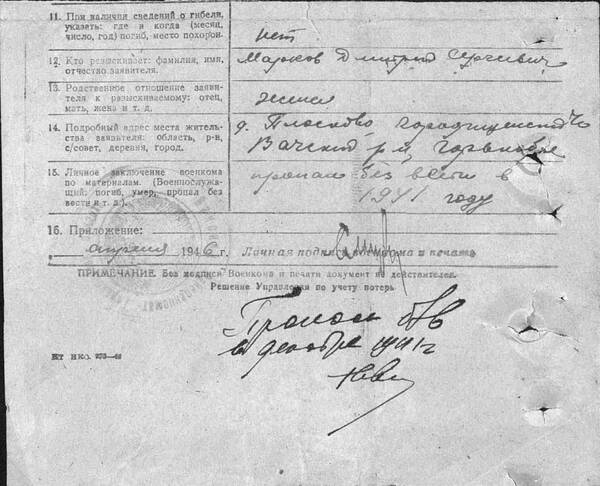 11. При наличии сведений о гибели,
указать: где и когда (месяц,
число, год) погиб, место похорон.
нет
12. Кто разыскивает: фамилия, имя,
отчество заявителя.
Марков Дмитрий Сергеевич
13. Родственное отношение заяви-
теля к разыскиваемому: отец,
мать, жена и т. д.
14. Подробный адрес места житель-
ства заявителя: область, р-н,
с/совет, деревня, город.
д. Плосково,
Вачский р-н,
15. Личное заключение военкома
по материалам. (Военнослужа-
щий: погиб, умер, пропал без
вести и т. д.).
пропал без вести в
1941 году
16. Приложение:
апреля 1946 г. Личная подпись военкома и печать
ПРИМЕЧАНИЕ. Без подписи Военкома и печати документ не действителен.
Решение Управления по учету потерь
Пропал б/в
в декабре 1941 г
ВТ НКО